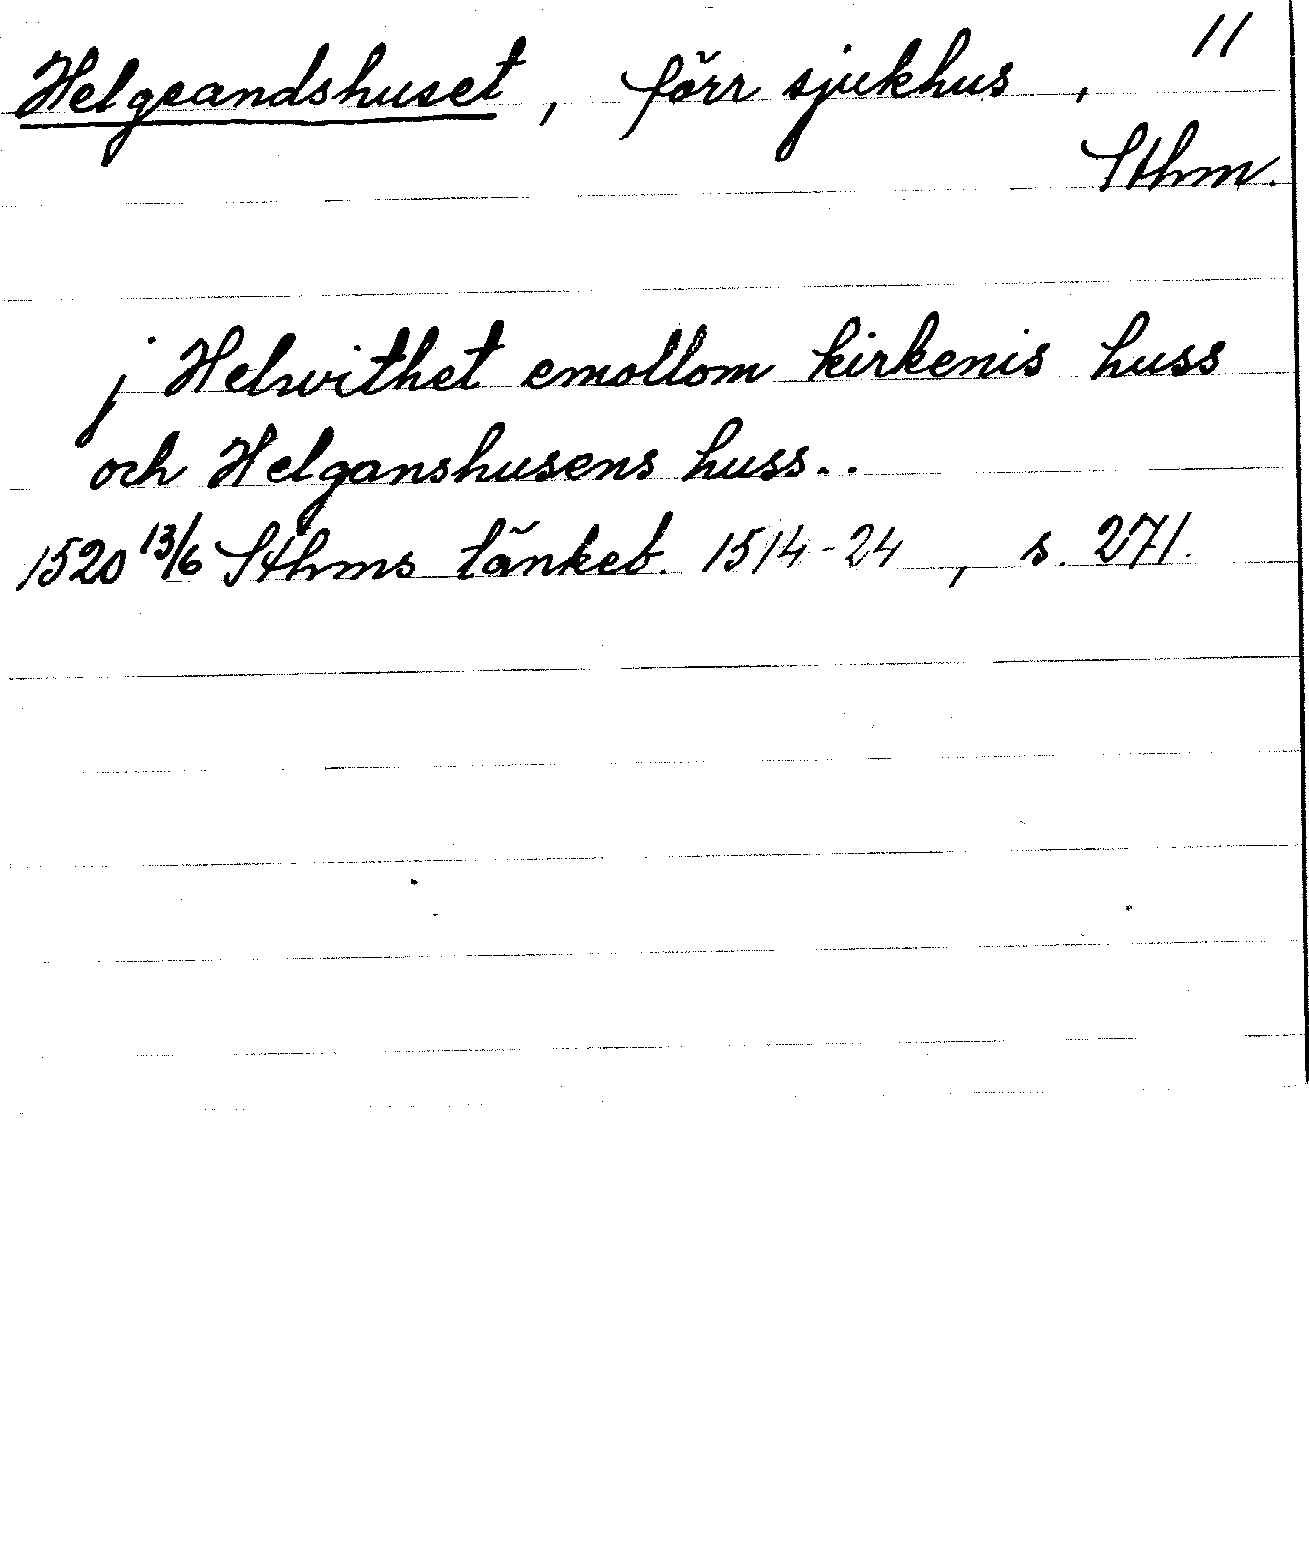 Helgeandshuset, förr sjukhus, 11
Sthm.
j Helwithet emollom kirkenis huss
och Helganshusens huss..
1520 13/6 Sthms tänkeb. 1514-24, s. 271.